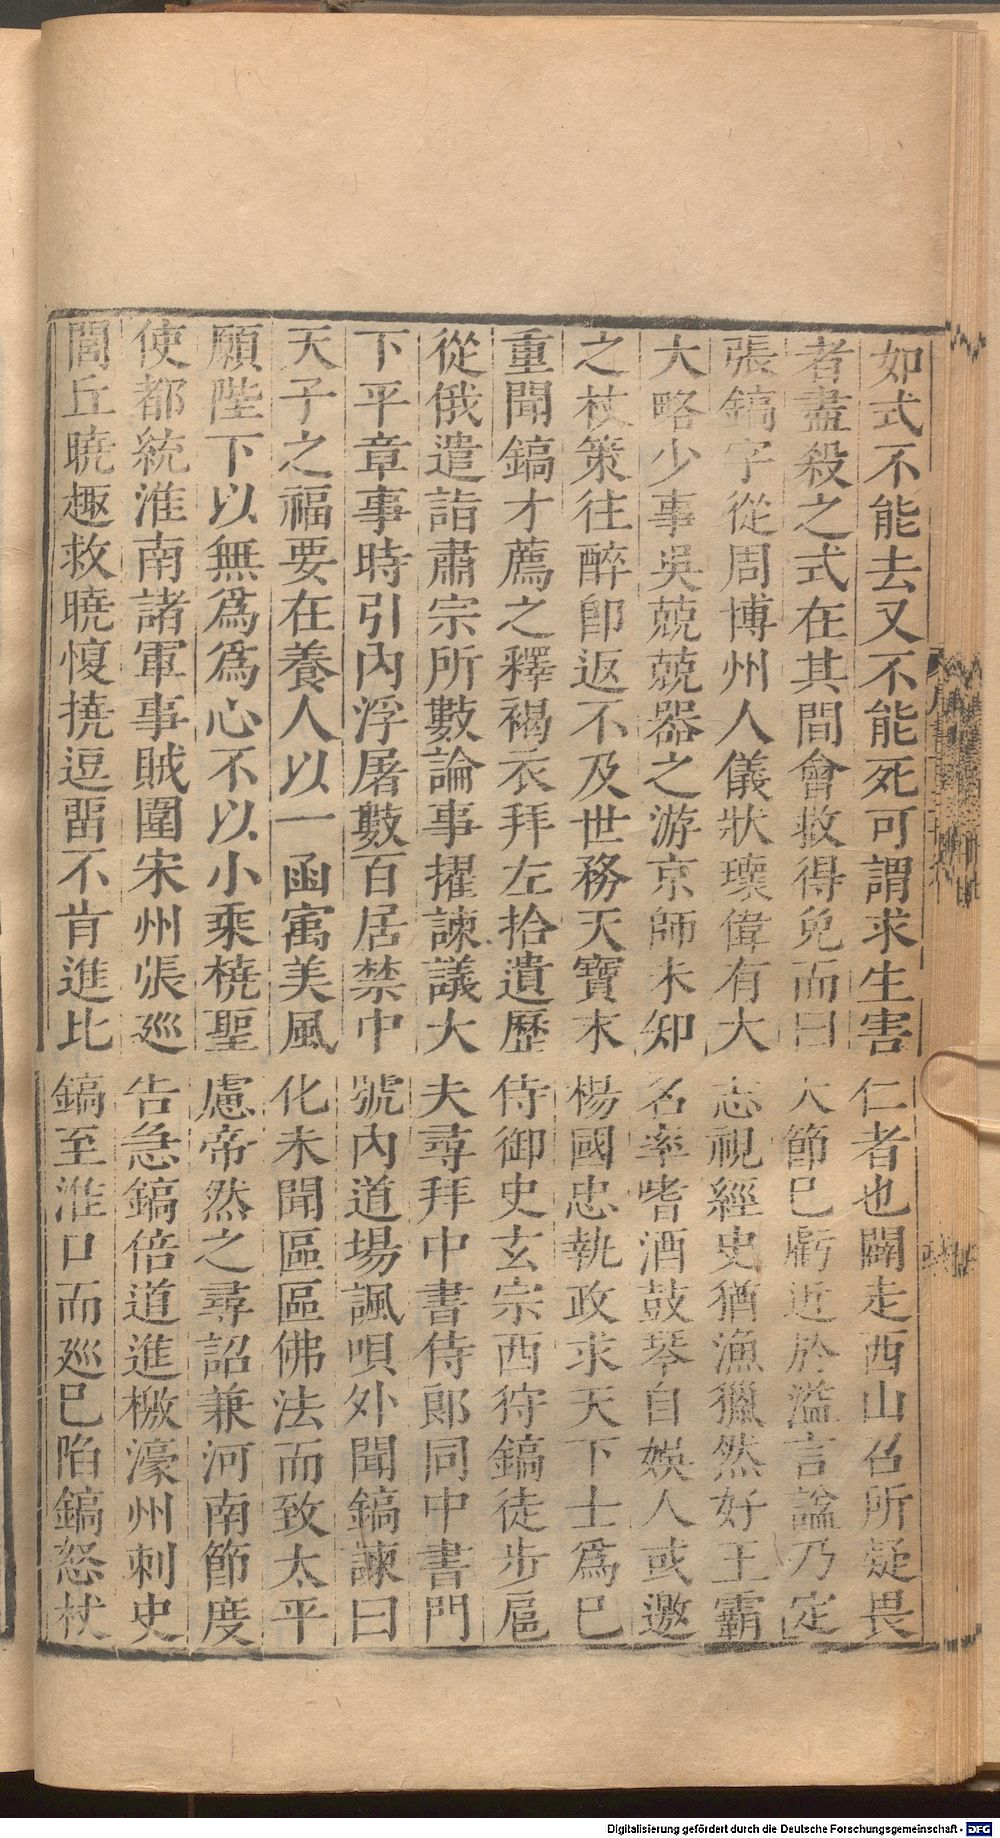 如式不能去又不能死可謂求生害仁者也闢走西山召所疑畏
者盡殺之式在其間會救得免而曰大節已虧近於濫言諡乃定
張鎬字從周博州人儀狀瓌偉有大志視經史猶漁獵然好王霸
大略少事吳兢兢器之游京師未知名率嗜酒鼓琴自娛人或邀
之杖策往醉即返不及世務天寶末楊國忠執政求天下士爲己
重聞鎬才薦之釋褐衣拜左拾遺歷侍御史玄宗西狩鎬徒步扈
從俄遣詣肅宗所數論事擢諫議大夫尋拜中書侍郎同中書門
下平章事時引內浮屠數百居禁中號內道場諷唄外聞鎬諫曰
天子之福要在養人以一函寓美風化未聞區區佛法而致太平
願陛下以無爲爲心不以小乘橈聖慮帝然之尋詔兼河南節度
使都統淮南諸軍事賊圍宋州張巡告急鎬倍道進檄濠州刺史
閭丘曉趣救曉愎撓逗畱不肯進比鎬至淮口而巡已陷鎬怒杖
Digitalisierung gefördert durch die Deutsche Forschungsgemeinschaft - DFG